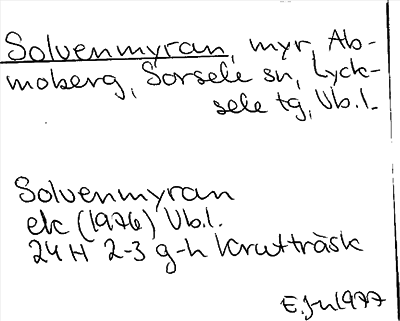 Solvenmyran, myr, Ab-
moberg, Sorsele sn, Lyck-
sele tg, Vb.l.
Solvenmyran
ek (1976) Vb.l.
24H 2-3 g-h Krutträsk
E. J-n 1977